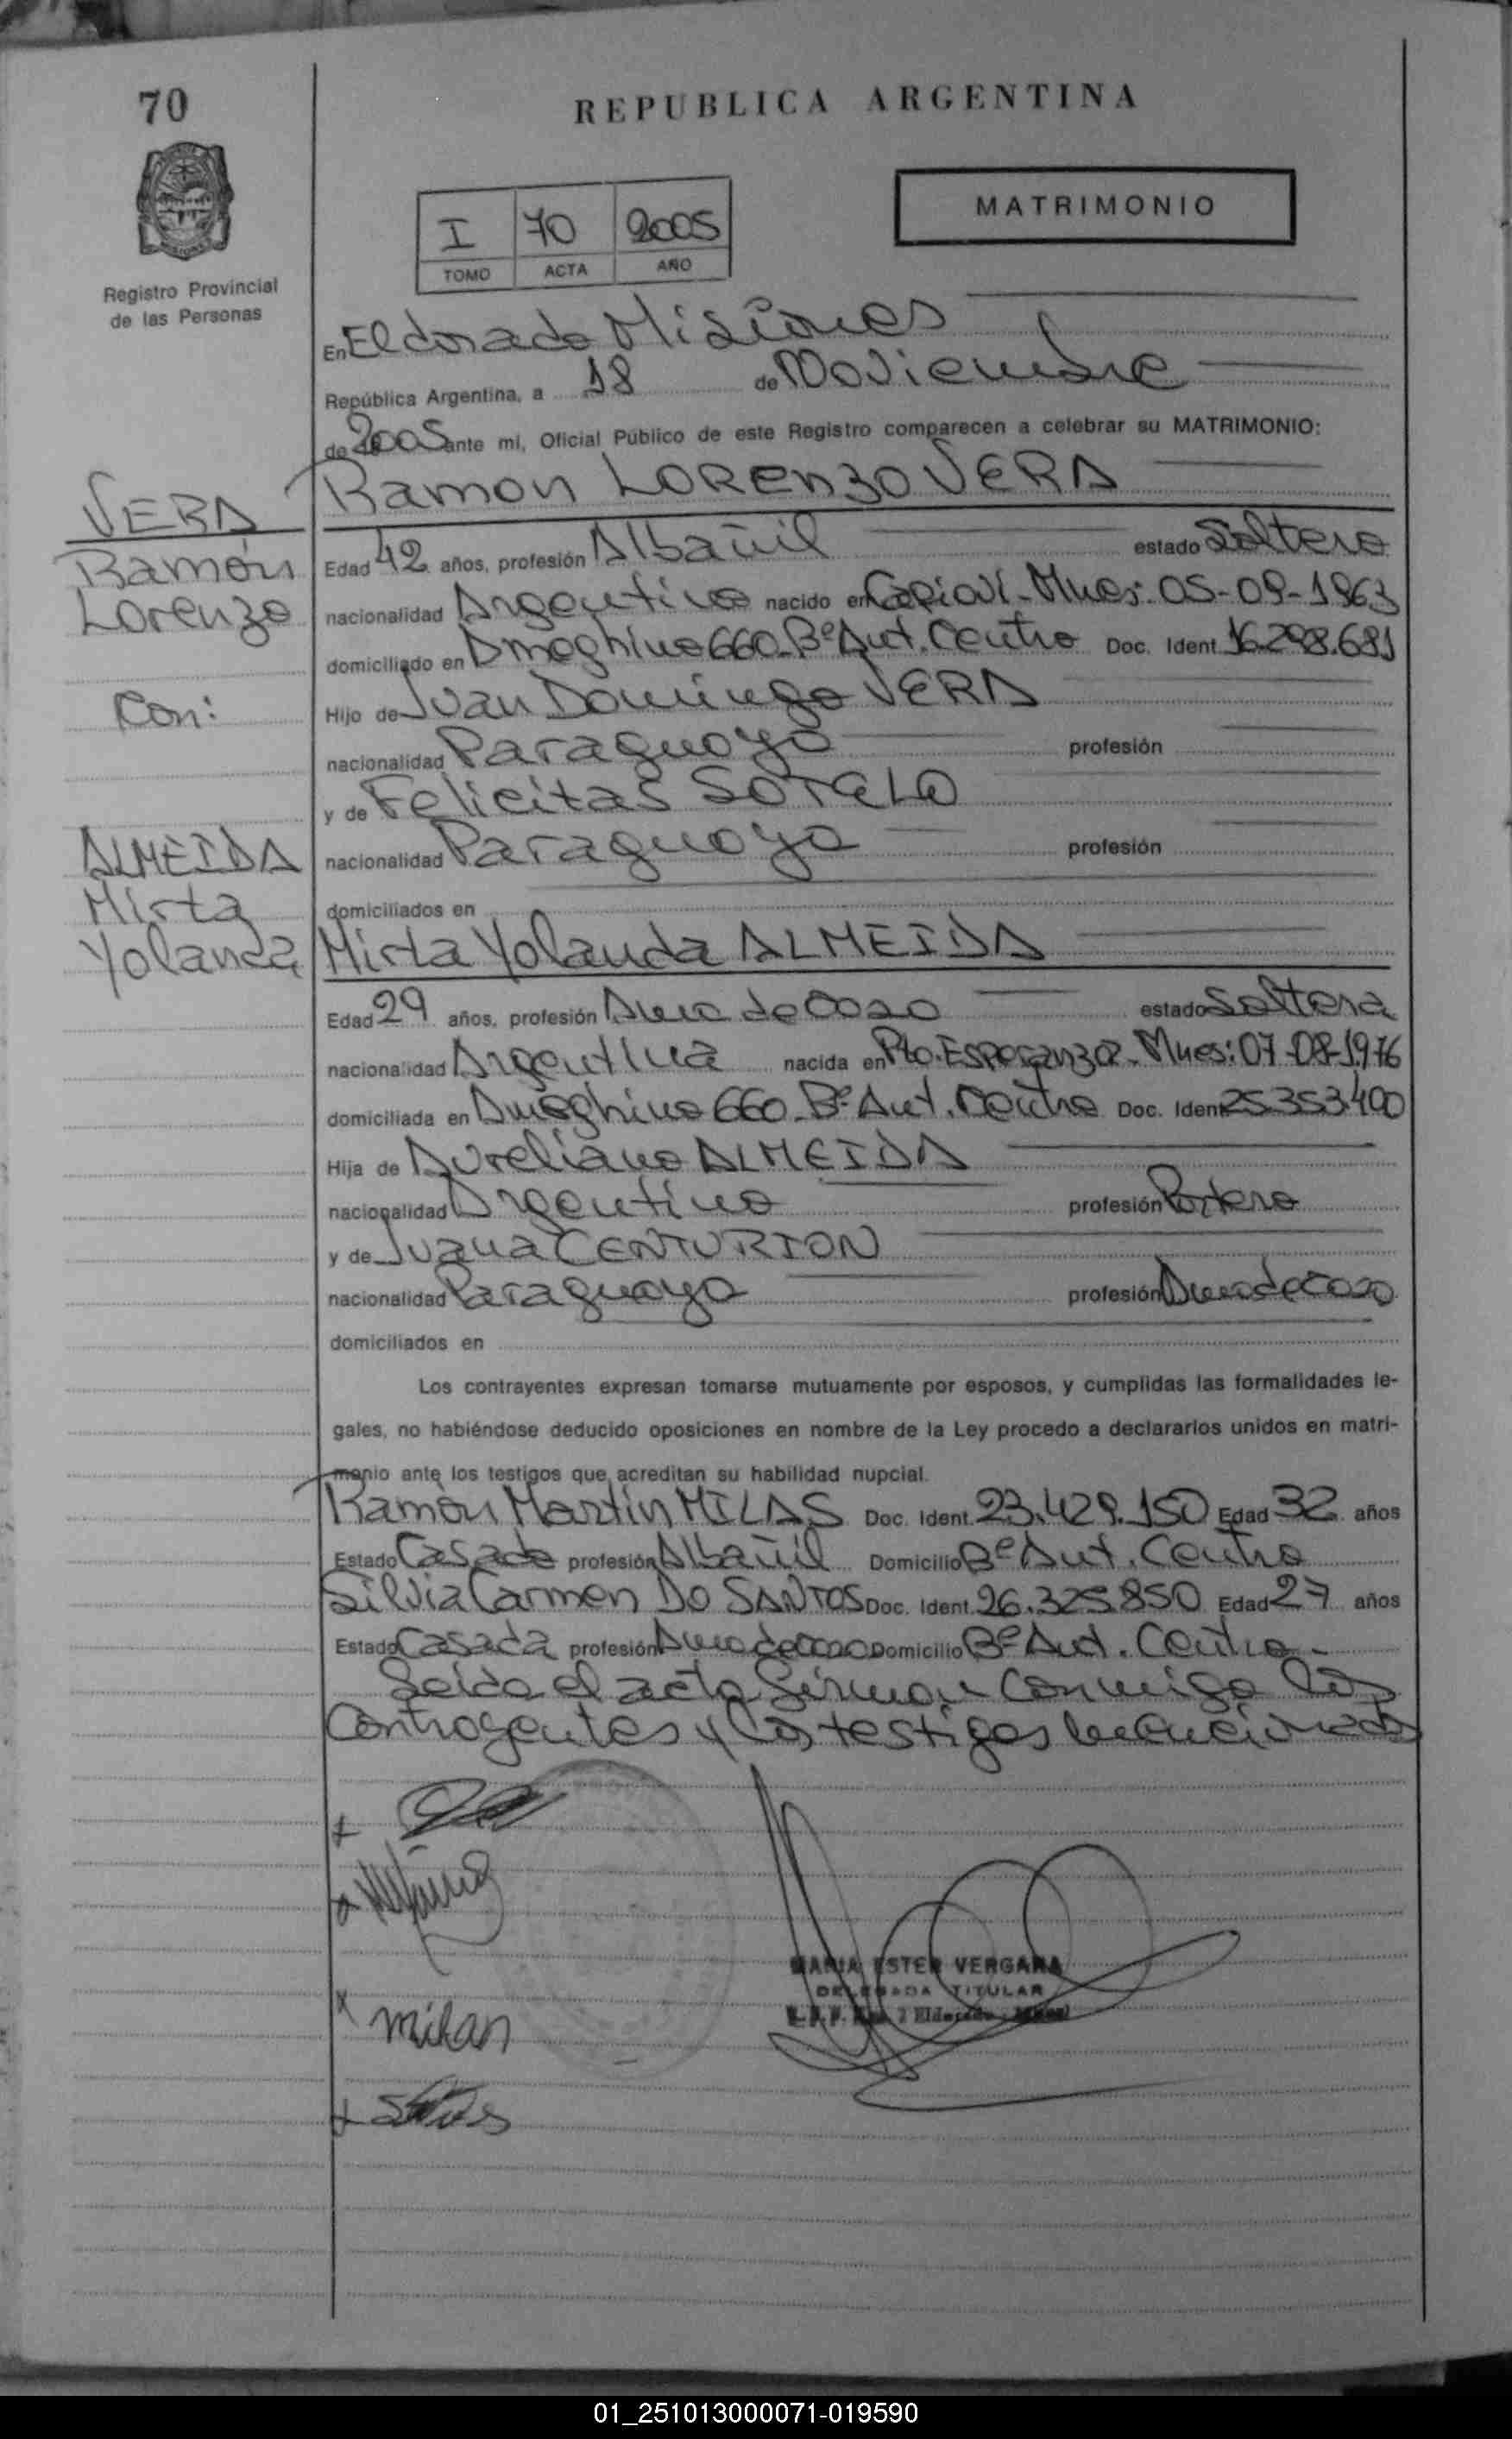 70
REPUBLICA ARGENTINA
MATRIMONIO
I 70 2005
TOMO ACTA AÑO
Registro Provincial
de las Personas
En Eldorado Misiones
República Argentina, a 18 de Noviembre
de 2005 ante mi, Oficial Público de este Registro comparecen a celebrar su MATRIMONIO:
Ramon LORENZO VERA
VERA
Ramón
Lorenzo
Con:
ALMEIDA
Mirta
Yolanda
Edad 42 años, profesión Albañil estado Soltero
nacionalidad Argentino nacido en Capioví - Mnes: 05-09-1963
domiciliado en Ameghino 660 - Bº Aut. Centro Doc. Ident. 16.298.681
Hijo de Juan Domingo VERA
nacionalidad Paraguayo profesión
y de Felicitas SOTELO
nacionalidad Paraguaya profesión
domiciliados en
Mirta Yolanda ALMEIDA
Edad 29 años, profesión Ama de Casa estado Soltera
nacionalidad Argentina nacida en Pto. Esperanza - Mnes: 07-08-1976
domiciliada en Ameghino 660 - Bº Aut. Centro Doc. Ident. 25.353.400
Hija de Aureliano ALMEIDA
nacionalidad Argentino profesión Portero
y de Juana CENTURION
nacionalidad Paraguaya profesión Ama de Casa
domiciliados en
Los contrayentes expresan tomarse mutuamente por esposos, y cumplidas las formalidades le-
gales, no habiéndose deducido oposiciones en nombre de la Ley procedo a declararlos unidos en matri-
monio ante los testigos que acreditan su habilidad nupcial.
Ramón Martín MILAS Doc. Ident. 23.429.150 Edad 32 años
Estado Casado profesión Albañil Domicilio Bº Aut. Centro
Silvia Carmen DO SANTOS Doc. Ident. 26.325.850 Edad 27 años
Estado Casada profesión Ama de Casa Domicilio Bº Aut. Centro -
Leída el acta firman conmigo los
Contrayentes y los testigos mencionados
MARIA ESTER VERGARA
DELEGADA TITULAR
milan
01_251013000071-019590